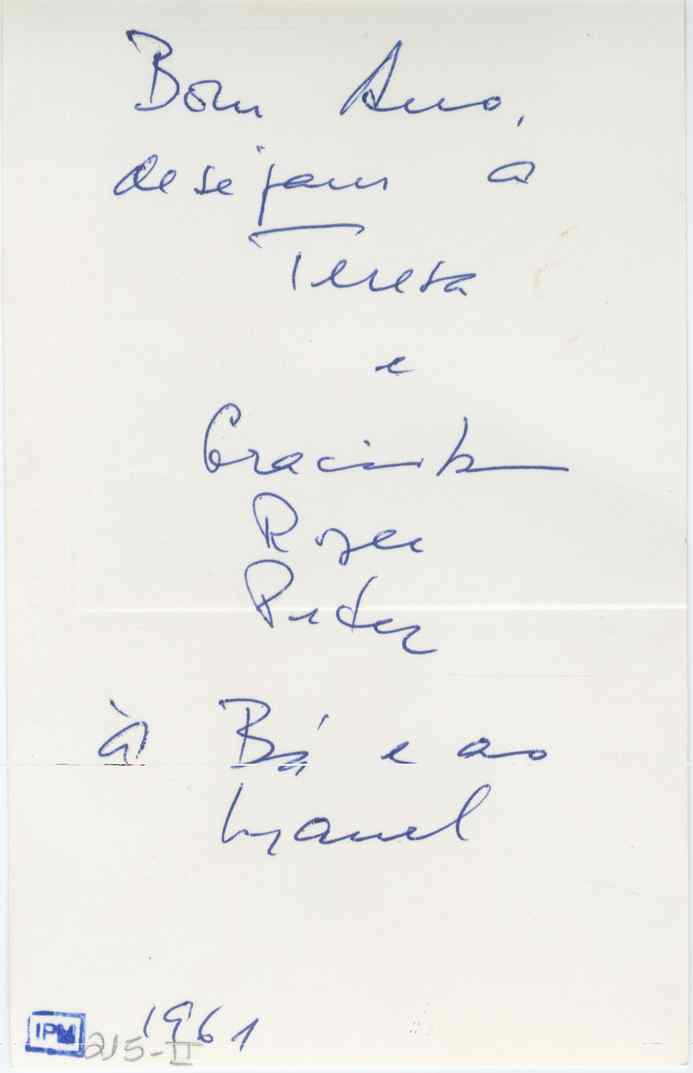 Bom Ano,
desejam a
Teresa
e
Gracinda
Roger
Peter
à Bá e ao
Manel
1961
IPM 215-II